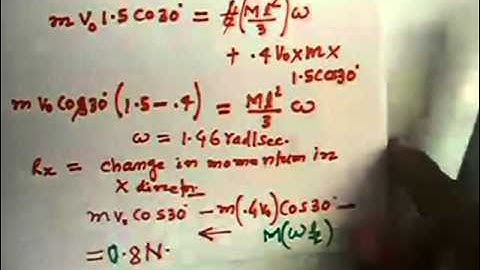 m V₀ 1.5 Cos 30° = (Ml²/3) ω
+ .4 V₀ x m x
1.5 Cos 30°
m V₀ Cos 30° (1.5 - .4) = Ml²/3 ω
ω = 1.46 rad/sec.
Rx = change in momentum in
X direcn.
m V₀ cos 30° - m(.4V₀) Cos 30° -
← M(ω l/2)
= 0.8 N.